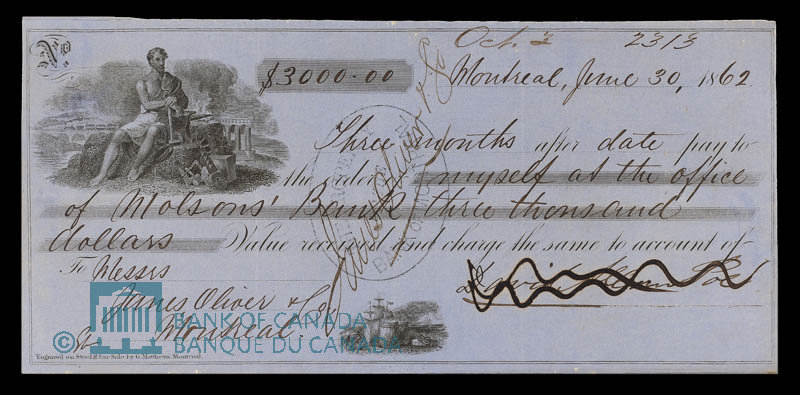 Oct. 3 2313
No
$3000.00 Montreal, June 30, 1862
Three months after date pay to
the order of myself at the office
of Molsons' Bank three thousand
dollars Value received and charge the same to account of
To Messrs
James Oliver & Co
Montreal
James Oliver & Co
BANK OF
© BANK OF CANADA
BANQUE DU CANADA
Engraved on Steel & for Sale by G. Matthews, Montreal.